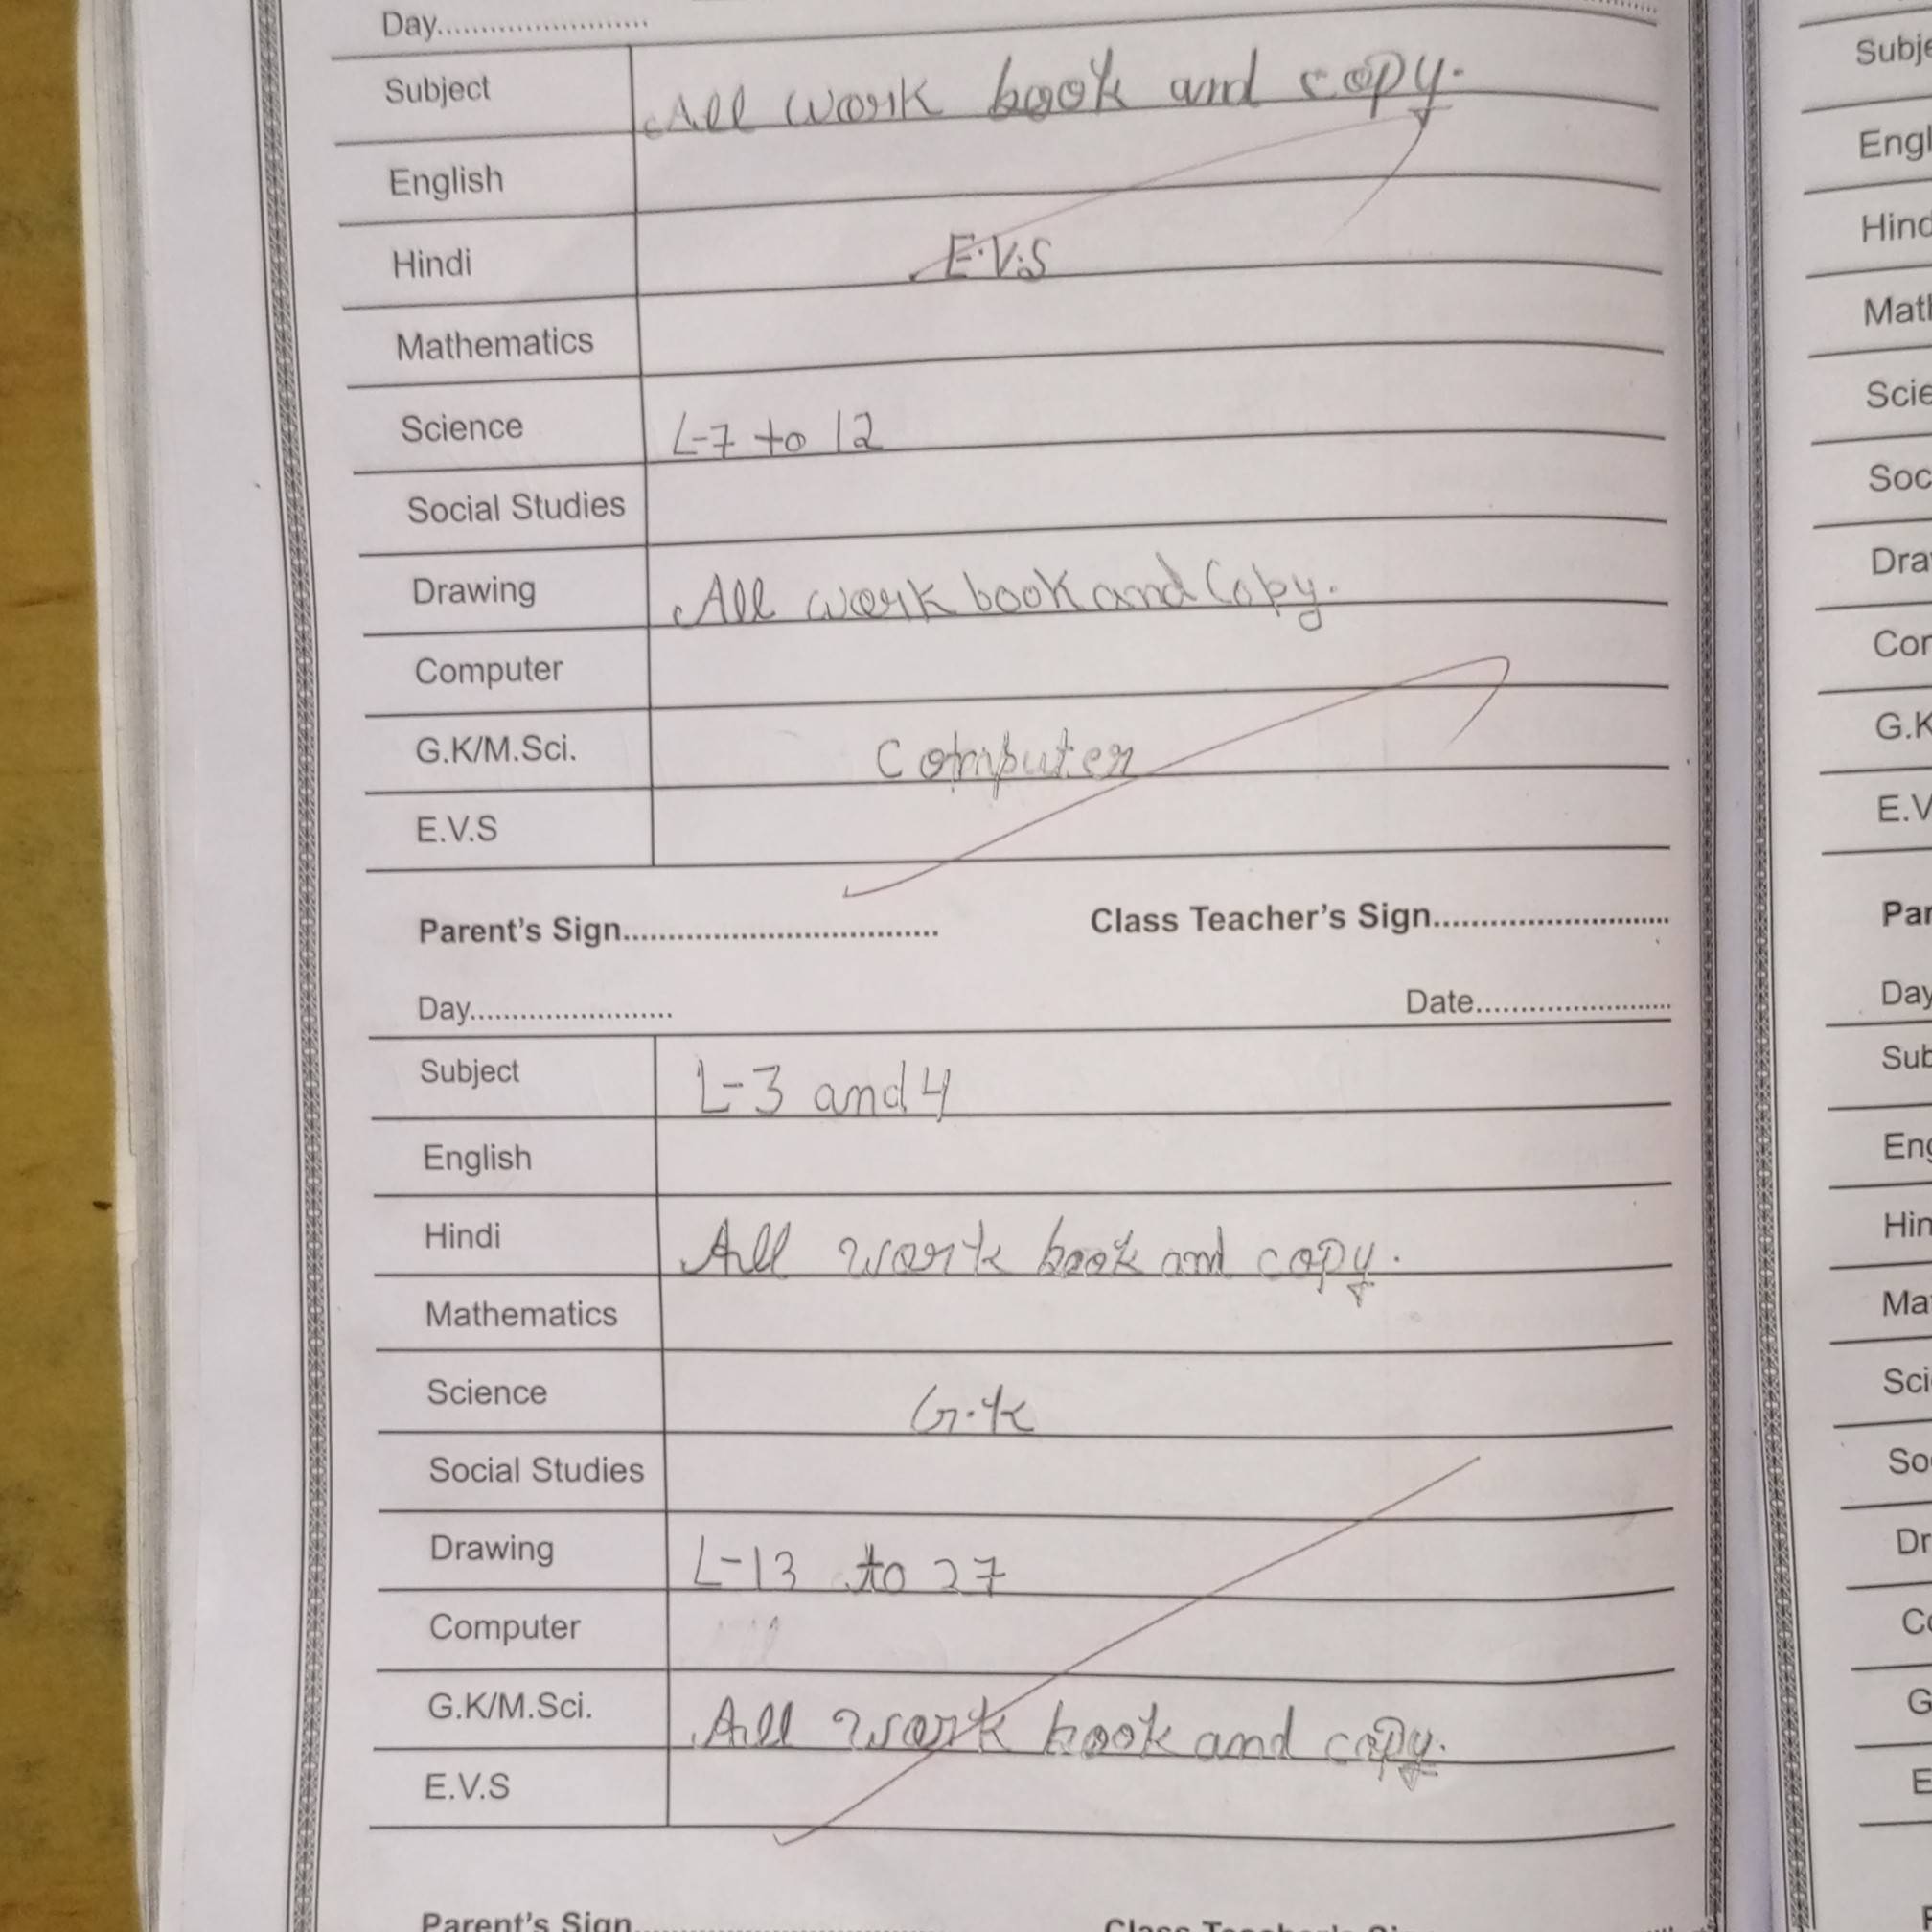 Day........................
Subject All work book and copy.
English
Hindi E.V.S
Mathematics
Science L-7 to 12
Social Studies
Drawing All work book and Copy.
Computer
G.K/M.Sci. Computer
E.V.S
Parent's Sign.................................... Class Teacher's Sign...........................
Day....................... Date......................
Subject L-3 and 4
English
Hindi All work book and copy.
Mathematics
Science G.K
Social Studies
Drawing L-13 to 27
Computer
G.K/M.Sci. All work book and copy.
E.V.S
Parent's Sign
Subje
Engl
Hind
Math
Scie
Soc
Dra
Com
G.K
E.V
Par
Day
Sub
Eng
Hin
Ma
Sci
So
Dr
Co
G
E